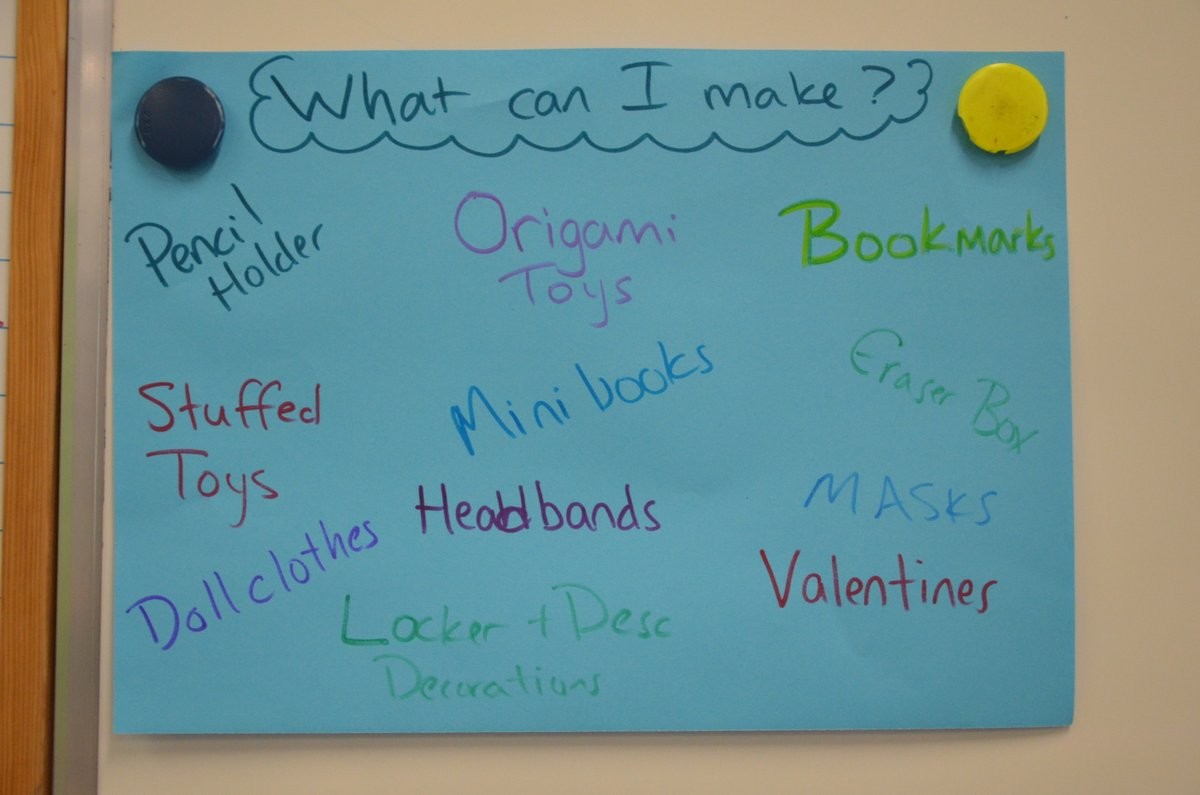 What can I make?
Pencil
Holder
Origami
Toys
Bookmarks
Stuffed
Toys
Mini books
Eraser Box
Headbands
MASKS
Doll clothes
Valentines
Locker + Desc
Decorations